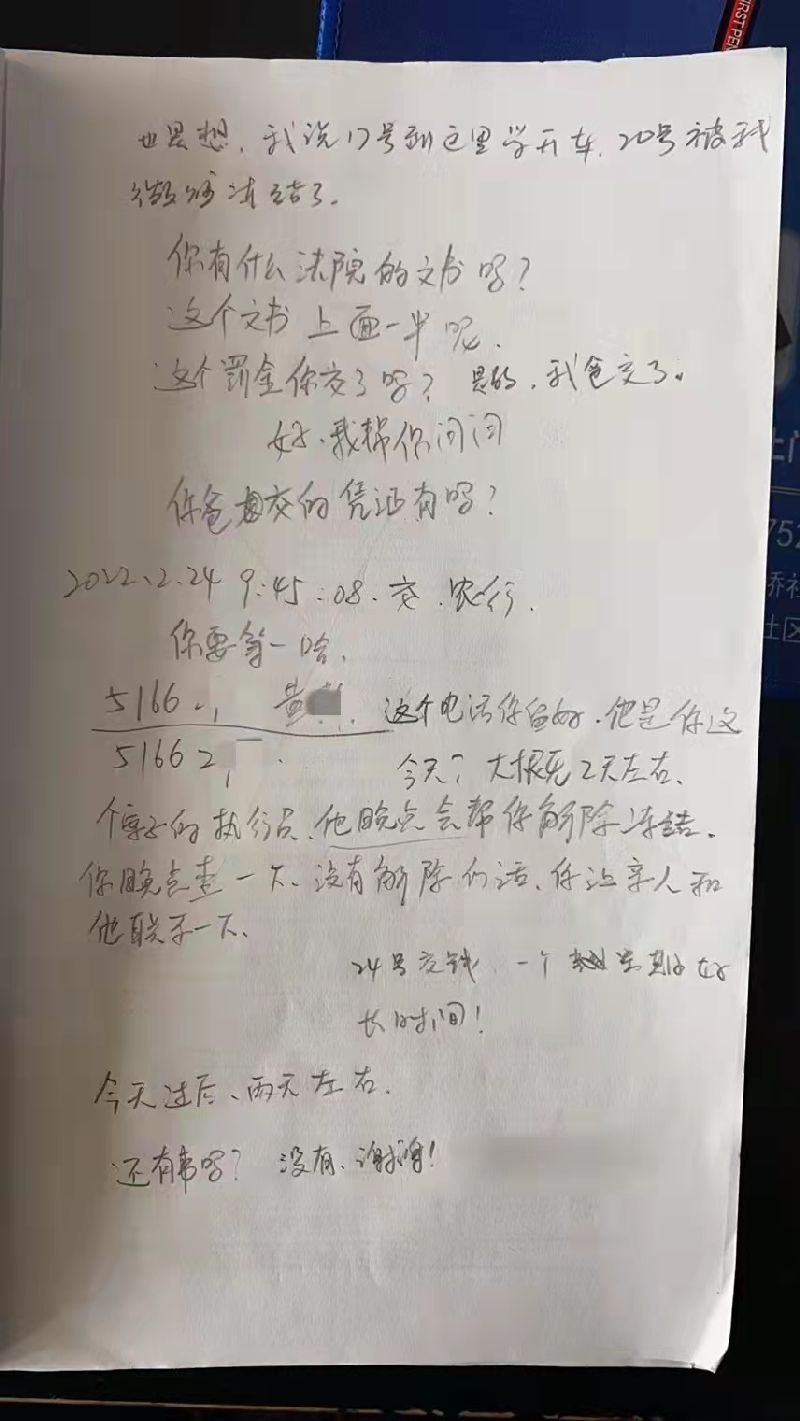 FIRST PE
也是想，我说17号到这里学开车，20号被我
冻结了。
你有什么法院的文书吗？
这个文书上面一半呢，
这个罚金你交了吗？是的，我爸交了。
好，我帮你问问
你爸交的凭证有吗？
2022.2.24 9:45:08.交.农行.
你要等一哈，
5166 黄 这个电话你留好，他是你这
5166 2
今天？大概死2天左右.
个案子的执行员，他晚点会帮你解除冻结。
你晚点查一下、没有解除的话，你让亲人和
他联系一下、
24号交钱，一个 好
长时间！
今天过后、两天左右.
还有事吗？没有，谢谢！
752
社区